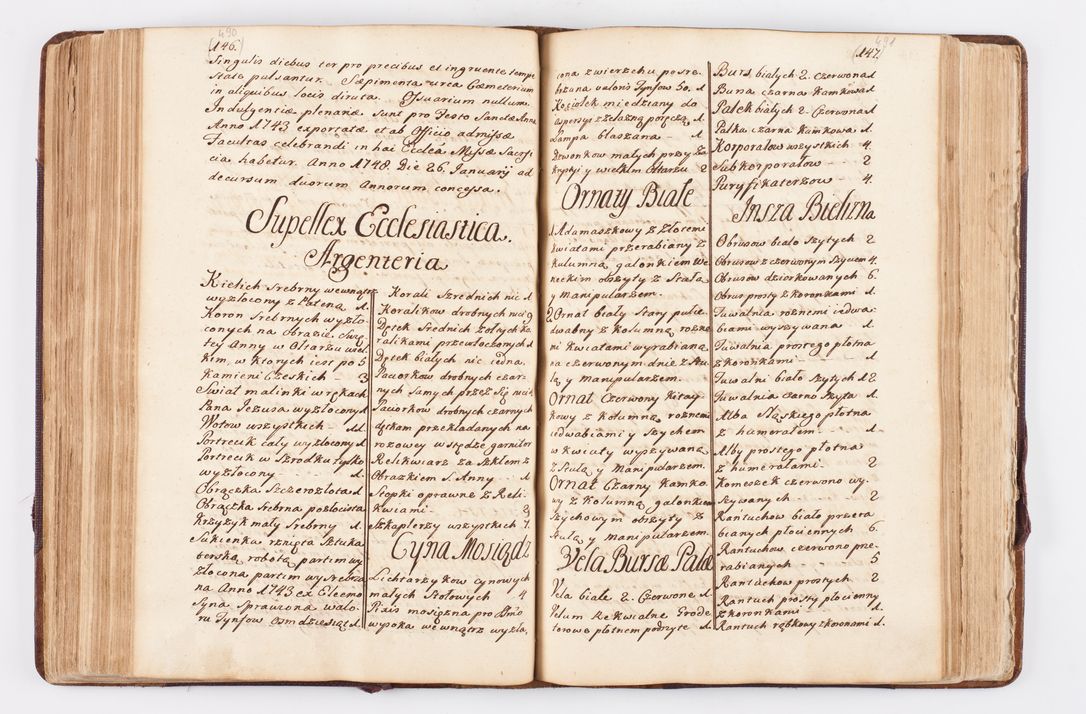 490
(146.)
Singulis diebus ter pro precibus et ingruente tempe
state pulsantur. Sæpimenta circa Cœmeterium
in aliquibus locis diruta. Ossuarium nullum.
Indulgentiæ plenariæ sunt pro Festo Sanctæ Annæ
Anno 1743 exportatæ et ab Officio admissæ
Facultas celebrandi in hac Ecclâ Missæ Sacrifi
cia habetur. Anno 1748. Die 26. Januarij ad
decursum duorum Annorum concessa.
Supellex Ecclesiastica.
Argenteria
Kielich Srebrny wewnątrz
wyzłocony z Pateną 1.
Koron Srebrnych wyzło-
conych na Obrazie Swię
tey Anny w Ołtarzu wiel
kim, w ktorych iest po 5
Kamieni Czeskich 3
Swiat malinki w rękach
Pana Jezusa wyzłocony 1
Wotow wszystkich 11
Portrecik cały wyzłocony 1
Portrecik w Szrodku tylko
wyzłocony 1.
Obrączka Szczerozłota 1
Obrączka Srebrna pozłocista
Krzyżyk mały Srebrny 1.
Sukienka rznięta Sztuka
torską robotą partim wy
złocona partim wy Srebrzo
na Anno 1743 ex Eleemo
syna Sprawzona walo-
ru Tynfow Osmdziesiąt 1.
Korali Szrednich nic 1
Koralikow drobnych nic 9
Dętek Srednich Zołtych ko
ralikami przewłoczonych 1
Dętek białych nic iedna.
Paworkow drobnych czar-
nych Samych przez się nic 1.
Paworkow drobnych czarnych
dętkam przekładanych na
rozowey wstędze garnitor
Relikwiarz za Szkłem z
Obrazkiem S. Anny 1
Stopki oprawne z Reli-
kwiami 2
Szkaplerzy wszystkich 7.
Cyna Mosiądz
Lichtarzykow cynowych
małych Stołowych 4
Pixis mosiężna pro Imo
wysoka wewnątrz wyzła,
491
(147.)
cona zwierzchu posre-
brzona valoris Tynfow 50. 1
Kociołek miedziany do
aspersyi z żelazną poręczą 1.
Lampa blaszana 1.
Dzwonkow małych przy Za
krystyi y wielkim Ołtarzu 2
Ornaty Białe
1 Adamaszkowy z Złotemi
kwiatami przerabiany z
Kulumną galonkiem We
neckim obszyty z Stułą
y Manipularzem.
2. Ornat biały Stary pulie
dwabny z Kolumną rozne
mi Kwiatami wyrabianą
na czerwonym dnie z Stu
łą y Manipularzem.
Ornat Czerwony Kitay-
kowy z Kolumną roznemi
iedwabiami y Szychem
w kwiaty wyszywaną
z Stułą y Manipularzem.
Ornat Czarny Kamko
wy z Kolumną galonkiem
Szychowym obszyty z
Stułą y Manipularzem.
Vela Bursæ Pallæ
Vela białe 2. Czerwone 1
Velum Rekwialne Grode
torowe płotnem podszyte 1.
Burs białych 2. Czerwona 1
Bursa czarna Kamkowa 1
Palek białych 2. Czerwona 1
Palka czarna Kamkowa 1.
Korporałow wszystkich 4.
Subkorporałow 2
Puryfikaterzow 4.
Insza Bielizna
Obrusow biało Szytych 2
Obrusow z czerwonym Szyciem 4.
Obrusow dziorkowanych 6.
Obrus prosty z Koronkami 1.
Tuwalnia roznemi iedwa-
biami wyszywana 1.
Tuwalnia prostego płotna
z Koronkami 1
Tuwalni biało Szytych 12
Tuwalnia czarno Szyta 1.
Alba Sląskiego płotna
z humerałem 1.
Alby prostego płotna
z humerałami 2
Komeżek czerwono wy-
szywanych 2
Rantuchow biało przera
bianych płociennych 6.
Rantuchow czerwono prze-
rabianych 5
Rantuchow prostych 2
Rantuch prosty płocienny
z Koronkami 1.
Rantuch rąbkowy z koronami 1.